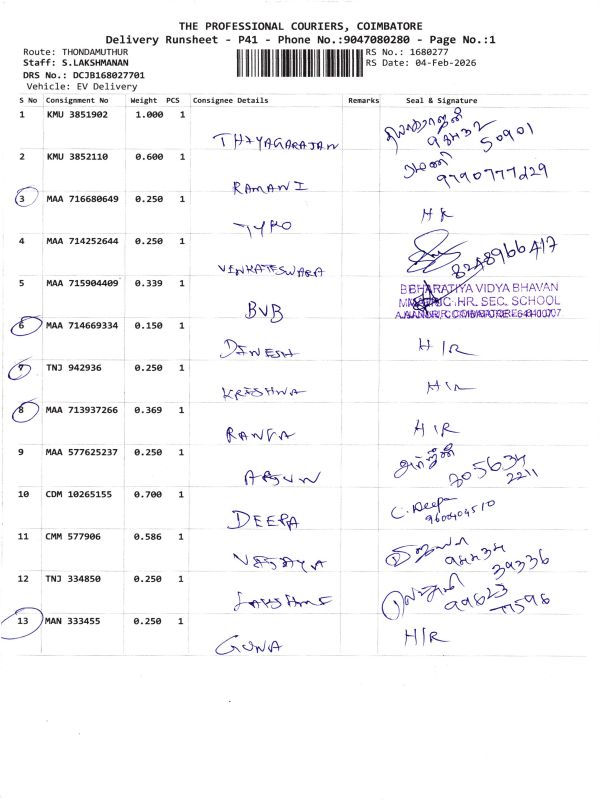 THE PROFESSIONAL COURIERS, COIMBATORE
Delivery Runsheet - P41 - Phone No.:9047080280 - Page No.:1
Route: THONDAMUTHUR RS No.: 1680277
Staff: S.LAKSHMANAN RS Date: 04-Feb-2026
DRS No.: DCJB168027701
Vehicle: EV Delivery
S No Consignment No Weight PCS Consignee Details Remarks Seal & Signature
1 KMU 3851902 1.000 1
THIYAGARAJAN 98432 50901
2 KMU 3852110 0.600 1 ரமணி
RAMANI 9790777829
3 MAA 716680649 0.250 1
TYRO HR
4 MAA 714252644 0.250 1
VINKATESWARA 8248966417
5 MAA 715904409 0.339 1 BHARATIYA VIDYA BHAVAN
BVB HR. SEC. SCHOOL
6 MAA 714669334 0.150 1
DINESH HIR
7 TNJ 942936 0.250 1
KRISHNA HIR
8 MAA 713937266 0.369 1
RANGA HIR
9 MAA 577625237 0.250 1
ARJUN 805634 2211
10 CDM 10265155 0.700 1 C. Deepa
DEEPA 9600404510
11 CMM 577906 0.586 1
VIJAYA 39336
12 TNJ 334850 0.250 1
LAKSHMI 99623
13 MAN 333455 0.250 1 HIR
GUNA